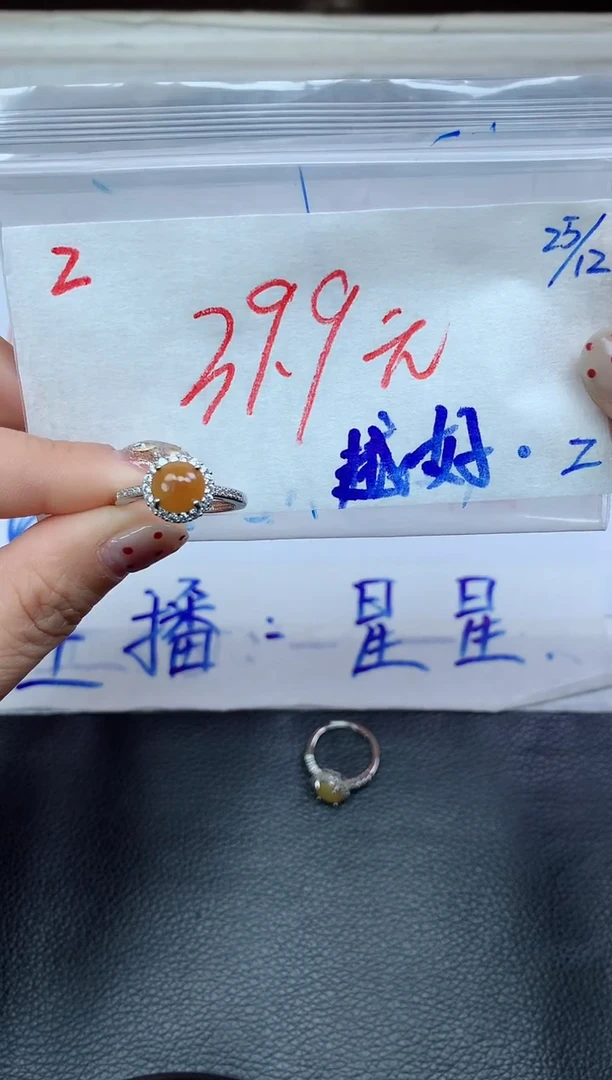 Z
25/12
39.9元
越好·Z
主播:星星.